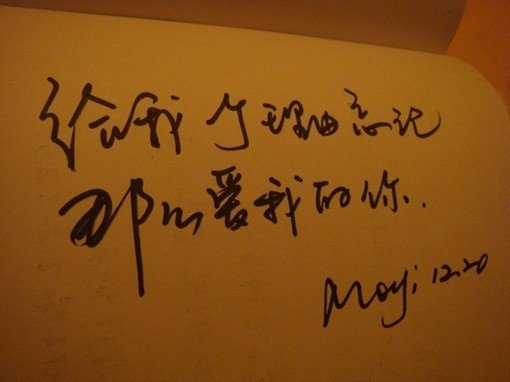 给我个理由忘记
那么爱我的你..
Moyi 12.20